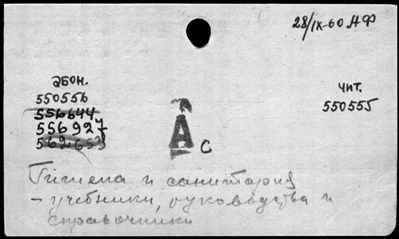 28/IX-60 АФ
абон.
550556
556644
556927
562653
чит.
550555
А с
Гигиена и санитария
- учебники, руководства и
справочники